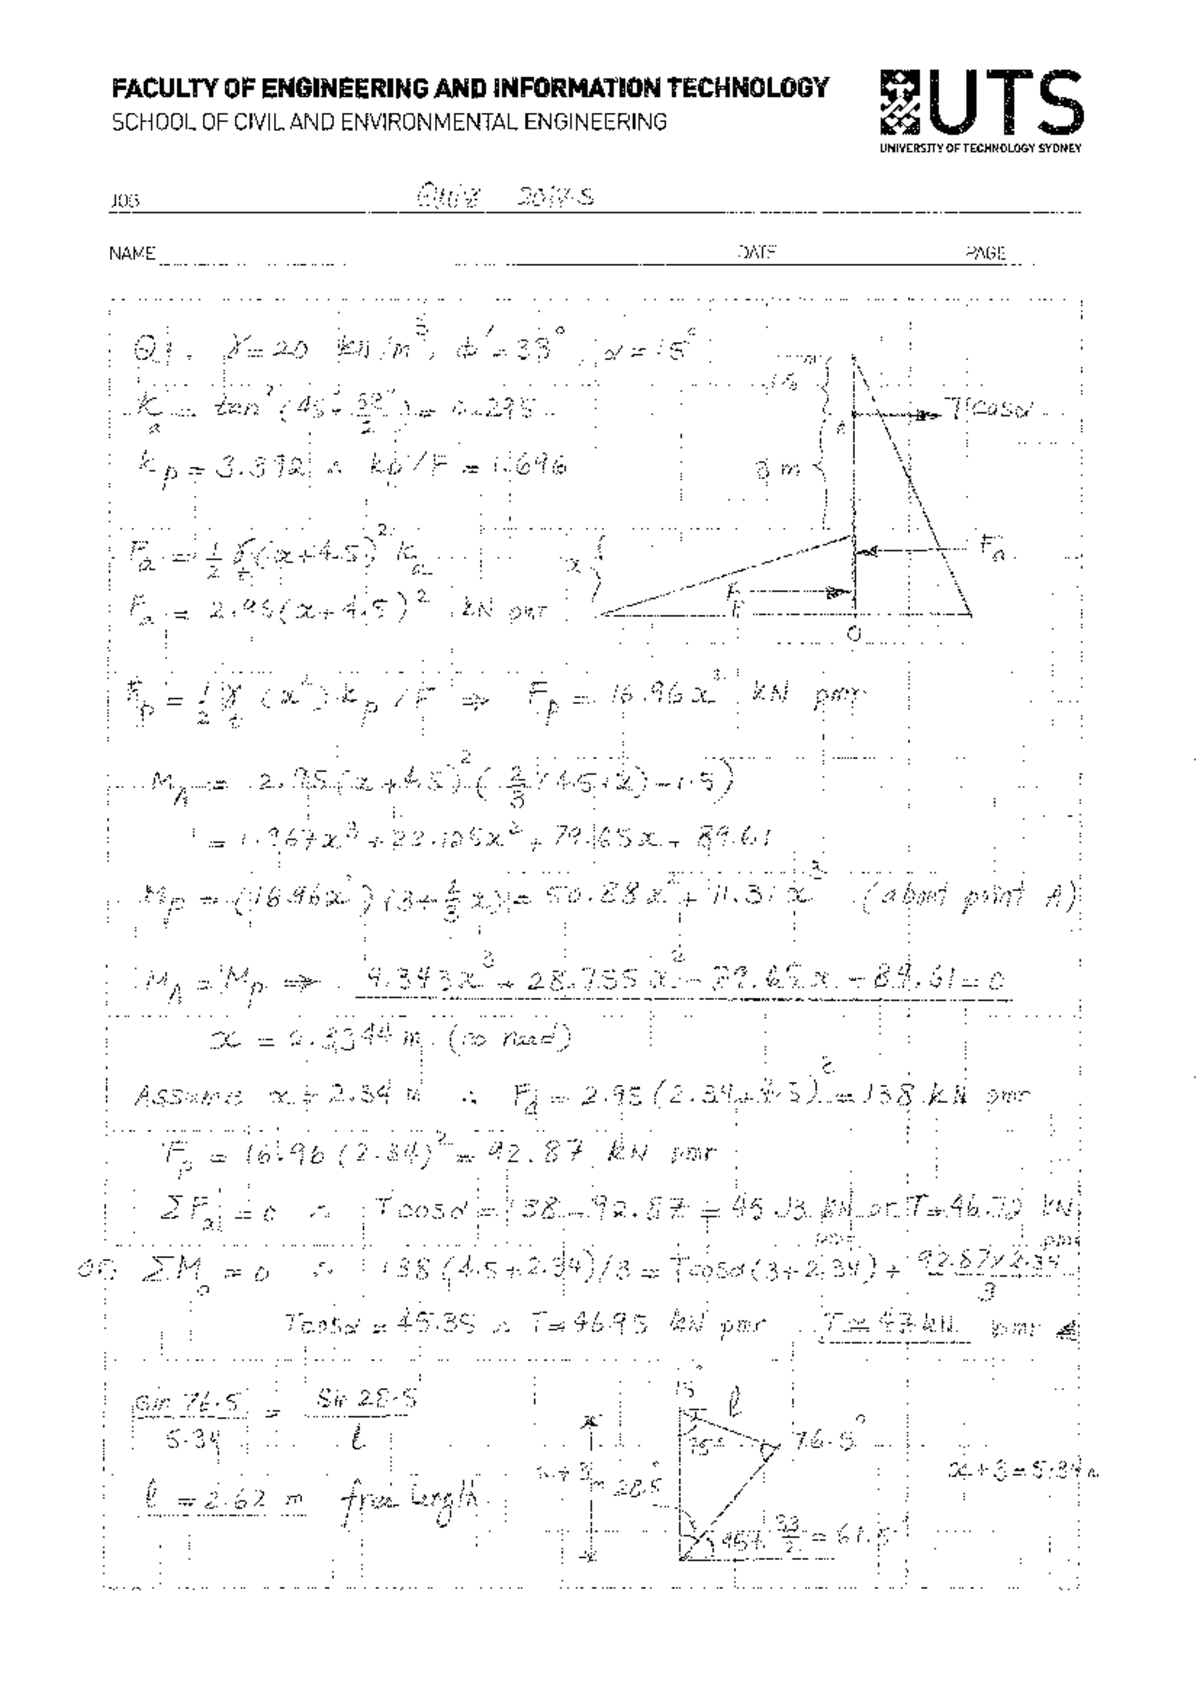 FACULTY OF ENGINEERING AND INFORMATION TECHNOLOGY
SCHOOL OF CIVIL AND ENVIRONMENTAL ENGINEERING
UTS
UNIVERSITY OF TECHNOLOGY SYDNEY
JOB Quiz
NAME DATE PAGE
Q1. γ=20 kN/m³, φ'=33°, α=15°
Ka = tan²(45-33/2)=0.295
kp = 3.392 ∴ kp/F = 1.696
1.5
A
Tcosα
3 m
Fa = ½ γt (x+4.5)² Ka
x
Fa
Fa = 2.95(x+4.5)² kN pmr
Fp
O
Fp = ½ γt (x²) kp /F ⇒ Fp = 16.96x² kN pmr
MA = 2.95(x+4.5)² (⅔(4.5+x)-1.5)
= 1.967x³+22.125x²+79.65x+89.61
Mp = (16.96x²)(3+⅔x)= 50.88x²+11.31x³ (about point A)
MA = Mp ⇒ 9.343x³+28.755x²-79.65x-89.61=0
x = 2.3344 m (no need)
Assume x = 2.34 m ∴ Fa = 2.95(2.34+4.5)² = 138 kN pmr
Fp = 16.96(2.34)² = 92.87 kN pmr
ΣFa = 0 ∴ Tcosα = 138-92.87 = 45.13 kN pmr or T=46.72 kN pmr
or ΣMo = 0 ∴ 138(4.5+2.34)/3 = Tcosα(3+2.34) + 92.87×2.34/3
Tcosα = 45.35 ∴ T=46.95 kN pmr T≈47 kN pmr
sin 76.5/5.34 = sin 28.5/l
15°
l
75°
76.5°
x+3 m
28.5°
x+3=5.34m
l = 2.62 m free length
45+33/2=61.5°